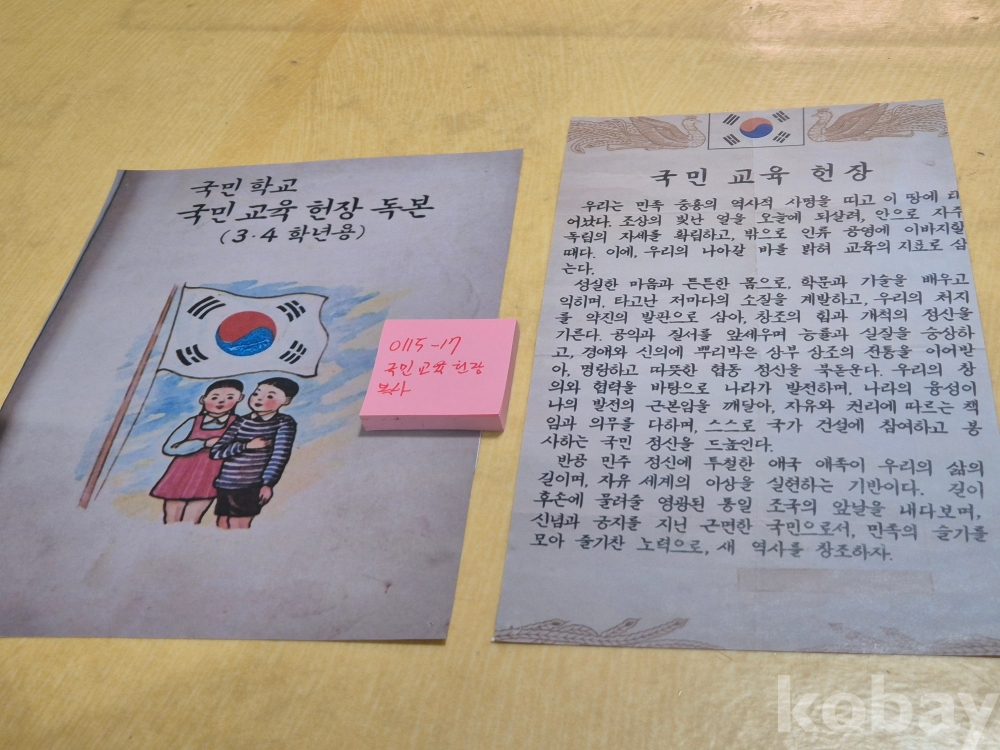 국민 학교
국민 교육 헌장 독본
(3·4 학년용)
0115-17
국민교육헌장
복사
국민 교육 헌장
우리는 민족 중흥의 역사적 사명을 띠고 이 땅에 태
어났다. 조상의 빛난 얼을 오늘에 되살려, 안으로 자주
독립의 자세를 확립하고, 밖으로 인류 공영에 이바지할
때다. 이에, 우리의 나아갈 바를 밝혀 교육의 지표로 삼
는다.
성실한 마음과 튼튼한 몸으로, 학문과 기술을 배우고
익히며, 타고난 저마다의 소질을 계발하고, 우리의 처지
를 약진의 발판으로 삼아, 창조의 힘과 개척의 정신을
기른다. 공익과 질서를 앞세우며 능률과 실질을 숭상하
고, 경애와 신의에 뿌리박은 상부 상조의 전통을 이어받
아, 명랑하고 따뜻한 협동 정신을 북돋운다. 우리의 창
의와 협력을 바탕으로 나라가 발전하며, 나라의 융성이
나의 발전의 근본임을 깨달아, 자유와 권리에 따르는 책
임과 의무를 다하며, 스스로 국가 건설에 참여하고 봉
사하는 국민 정신을 드높인다.
반공 민주 정신에 투철한 애국 애족이 우리의 삶의
길이며, 자유 세계의 이상을 실현하는 기반이다. 길이
후손에 물려줄 영광된 통일 조국의 앞날을 내다보며,
신념과 긍지를 지닌 근면한 국민으로서, 민족의 슬기를
모아 줄기찬 노력으로, 새 역사를 창조하자.
kobay